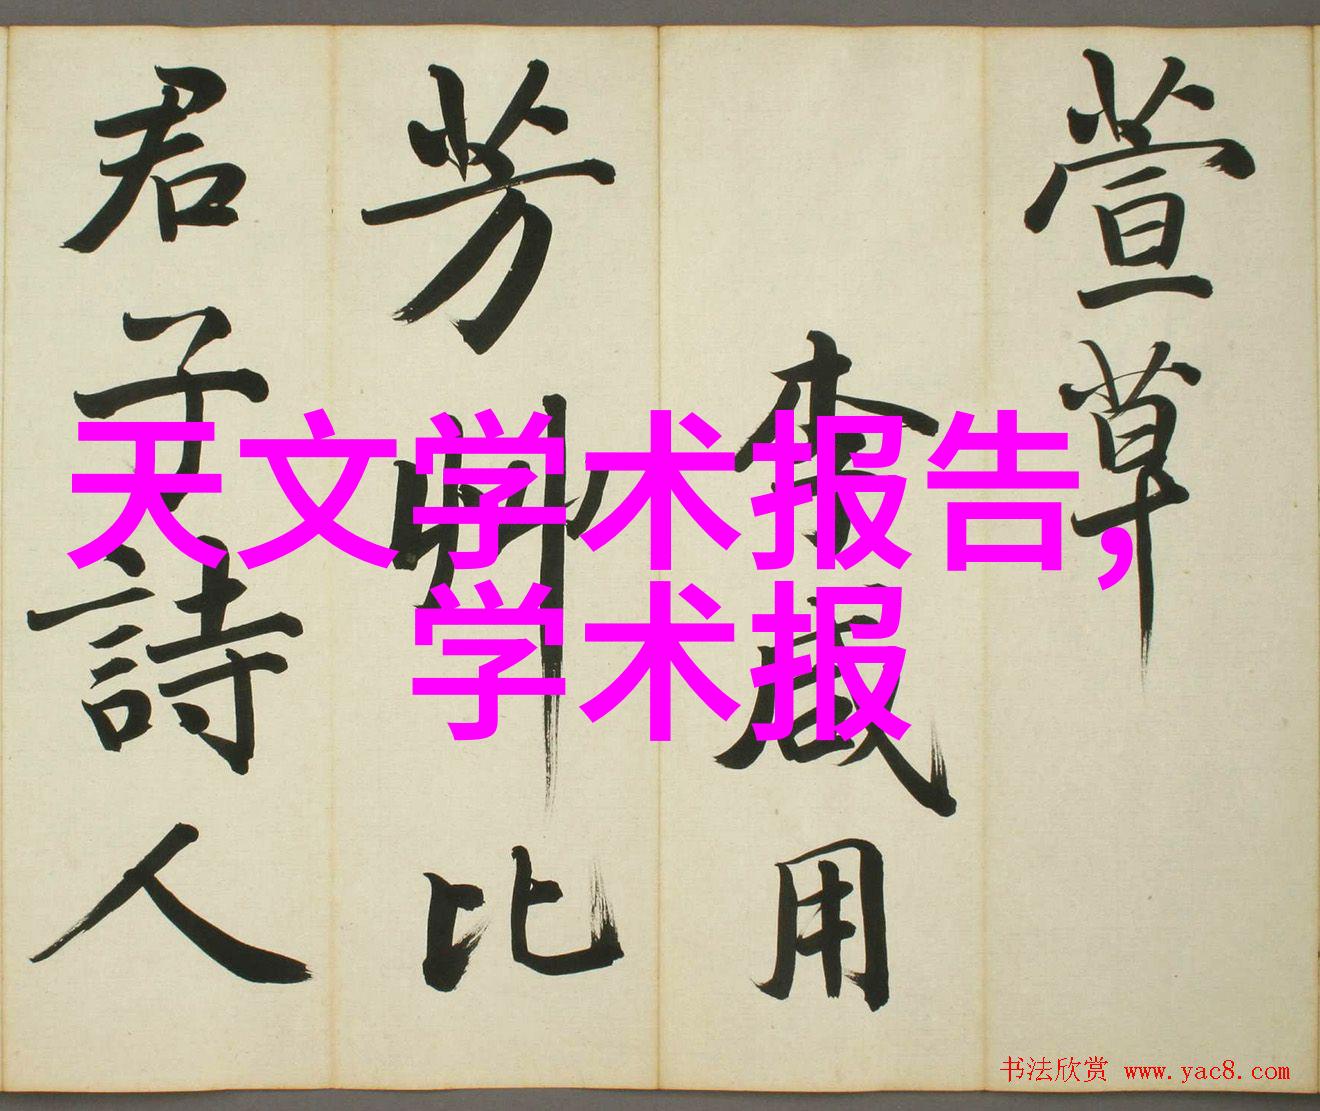 萱草
李咸用
芳艸比
君子詩人
天文学术报告,
学术报
书法欣赏 www.yac8.com